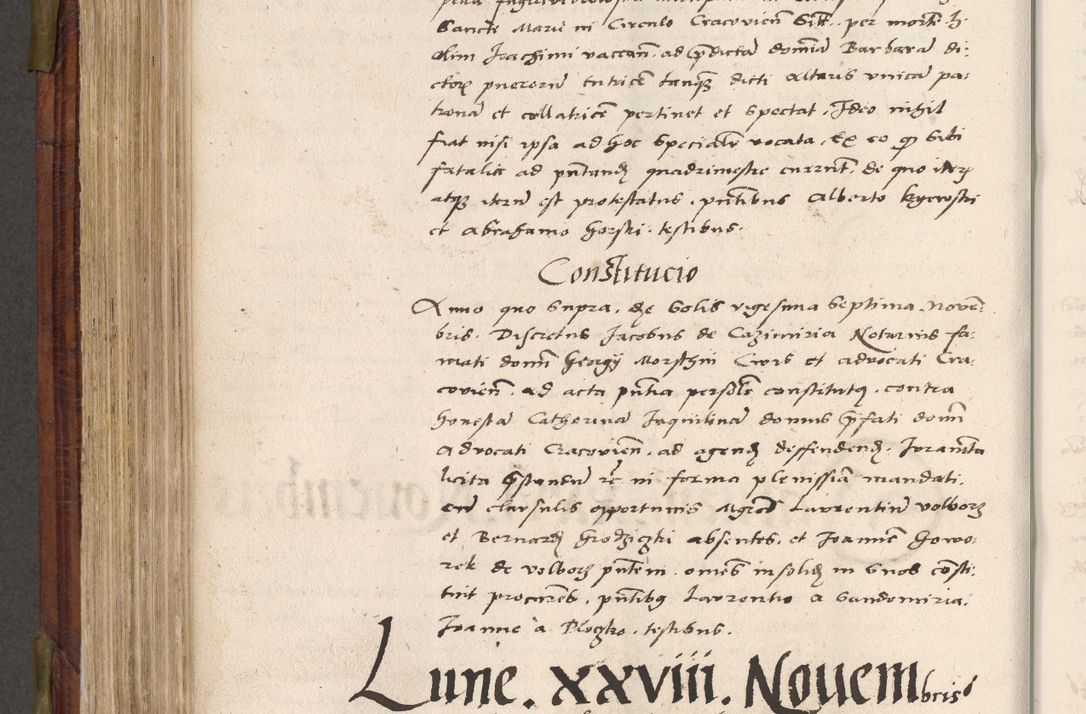 Sancte Marie in Circulo Cracovień Sitħ per mortē
olim Joachimi vaccań ad p̄dictā dominā Barbarā di-
ctorꝫ puerorū tutricē tanqꝫ dicti altaris unicā pa-
tronā et collatricē pertinet et spectat. Ideo nihil
fiat nisi ipsa ad hoc specialr̄ vocata. Ex eo qꝫ sibi
fatalia ad pn̄tandꝫ quadrimestre current. de quo iterꝫ
atqꝫ iterū est protestatus. pn̄tibus Alberto
et Abrahamo Gorski testibus.
Constitucio
Anno quo supra. die Solis vigesima septima Novē-
bris. Discretus Jacobus de Cazimiria Notarius fa-
mati domī Georgij Morsthin Civis et advocati Cra-
covień. ad acta pn̄tia personlr̄ constitutꝫ. contra
honestā Catherinā Inquilinā domus p̄fati domī
advocati Cracovień. ad agendꝫ deffendendꝫ. Juramēta
licita p̄standū rc̄ in forma plenissia mandati.
cū clausulis opportunis Mgrōs Laurentiū Volborꝫ
et Bernardꝫ Grodziczki absentes. et Joannē Gowo-
rek de Volborꝫ pn̄tem. omēs insolidꝫ in suos cōsti-
tuit procurēs. pn̄tibꝫ Laurentio a Sandomiria.
Joanne a Plogko. testibus.
Lune. xxviii. Nouembris